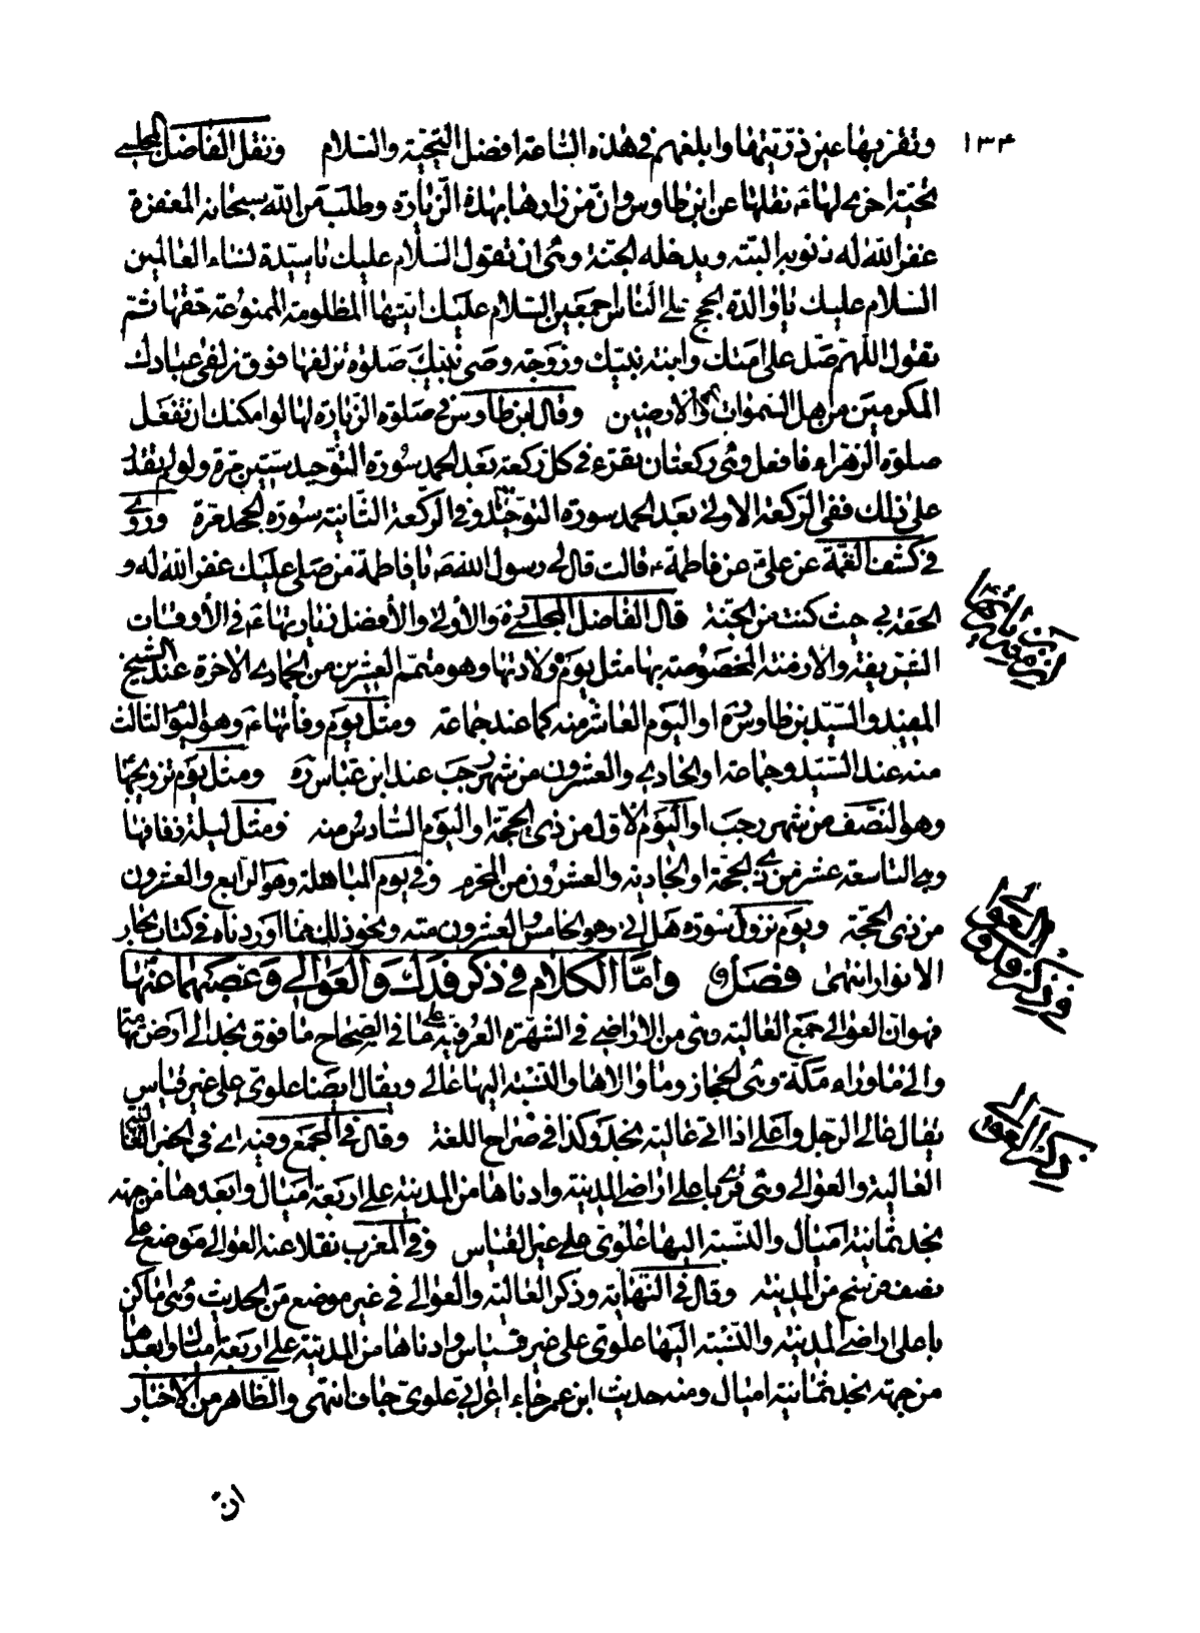 ١٣۴
وتقرّ بها عين ذرّيّتها وابلغهم في هذه السّاعة افضل التّحيّة والسّلام ونقل الفاضل المجلسي
تحيّة اخرى لهاء نقلها عن ابن طاوس وانّ من زارها بهذه الزّيارة وطلب من اللّه سبحانه المغفرة
غفر اللّه له ذنوبه البتّه ويدخله الجنّة وهى ان تقول السّلام عليك يا سيّدة نساء العالمين
السّلام عليك يا والدة الحجج على النّاس اجمعين السّلام عليك ايّتها المظلومة الممنوعة حقّها ثمّ
تقول اللّهمّ صلّ على امتك وابنة نبيّك وزوجة وصىّ نبيّك صلوة تزلفها فوق زلفى عبادك
المكرمين من اهل السّموات والارضين وقال ابن طاوس في صلوة الزّيارة لها لو امكنك ان تفعل
صلوة الزهراء فافعل وهى ركعتان تقرء في كل ركعة بعد الحمد سورة التّوحيد ستّين مرة ولو لم تقدر
على ذلك ففى الرّكعة الاولى بعد الحمد سورة التوحيد وفي الرّكعة الثّانية سورة الجحد مرّة وروى
في كشف الغمّة عن علىّ عن فاطمة ء قالت قال لى رسول اللّه ص يا فاطمة من صلى عليك غفر اللّه له و
الحقه بي حيث كنت من الجنّة قال الفاضل المجلسي ره والأولى والأفضل زيارتهاء في الأوقات
الشّريفة والازمنة المخصوصة بها مثل يوم ولادتها وهو متمّم العشرين من الجمادى الآخرة عند الشّيخ
المفيد والسّيّد بن طاوس ره او اليوم العاشر منه كما عند جماعة ومثل يوم وفاتهاء وهو اليوم الثالث
منه عند السّيّد وجماعة او الحادى والعشرون من شهر رجب عند ابن عبّاس ره ومثل يوم تزويجها
وهو النّصف من شهر رجب او اليوم الاوّل من ذى الحجّة او اليوم السّادس منه ومثل ليلة زفافها
وهى التاسعة عشر من ذى الحجّة او الحادية والعشرون من المحرّم وفي يوم المباهلة وهو الرّابع والعشرون
من ذى الحجّة ويوم نزول سورة هل اتى وهو الخامس والعشرون منه ونحو ذلك ممّا اوردناه في كتاب بحار
الانوار انتهى فصل وامّا الكلام في ذكر فدك والعوالي وغصبهما عنها
فهو ان العوالى جمع العالية وهى من الاراضى في الشهرة العرفيّة على ما في الصّحاح ما فوق نجد الى ارض تهامة
والى ما وراء مكّة وهى الحجاز وما والاها والنّسبة اليها عالى ويقال ايضا علوىّ على غير قياس
يقال عالى الرّجل واعلى اذا اتى عالية نجد وكذا في صراح اللغة وقال في المجمع وفيه اى في الخبر
العالية والعوالى وهى قرى باعلى اراضى المدينة وادناها من المدينة على اربعة اميال وابعدها من جهة
نجد ثمانية اميال والنّسبة اليها علوىّ على غير القياس وفي المغرب نقلا عنه العوالى موضع على
نصف فرسخ من المدينة وقال في النّهاية وذكر العالية والعوالى في غير موضع من الحديث وهى اماكن
باعلى اراضى المدينة والنّسبة اليها علوىّ على غير قياس وادناها من المدينة على اربعة اميال وابعدها
من جهة نجد ثمانية اميال ومنه حديث ابن عمر جاء اعرابيّ علوىّ جاف انتهى والظّاهر من الاخبار
انّ
في ذكر فدك والعوالي
ذكر العوالى